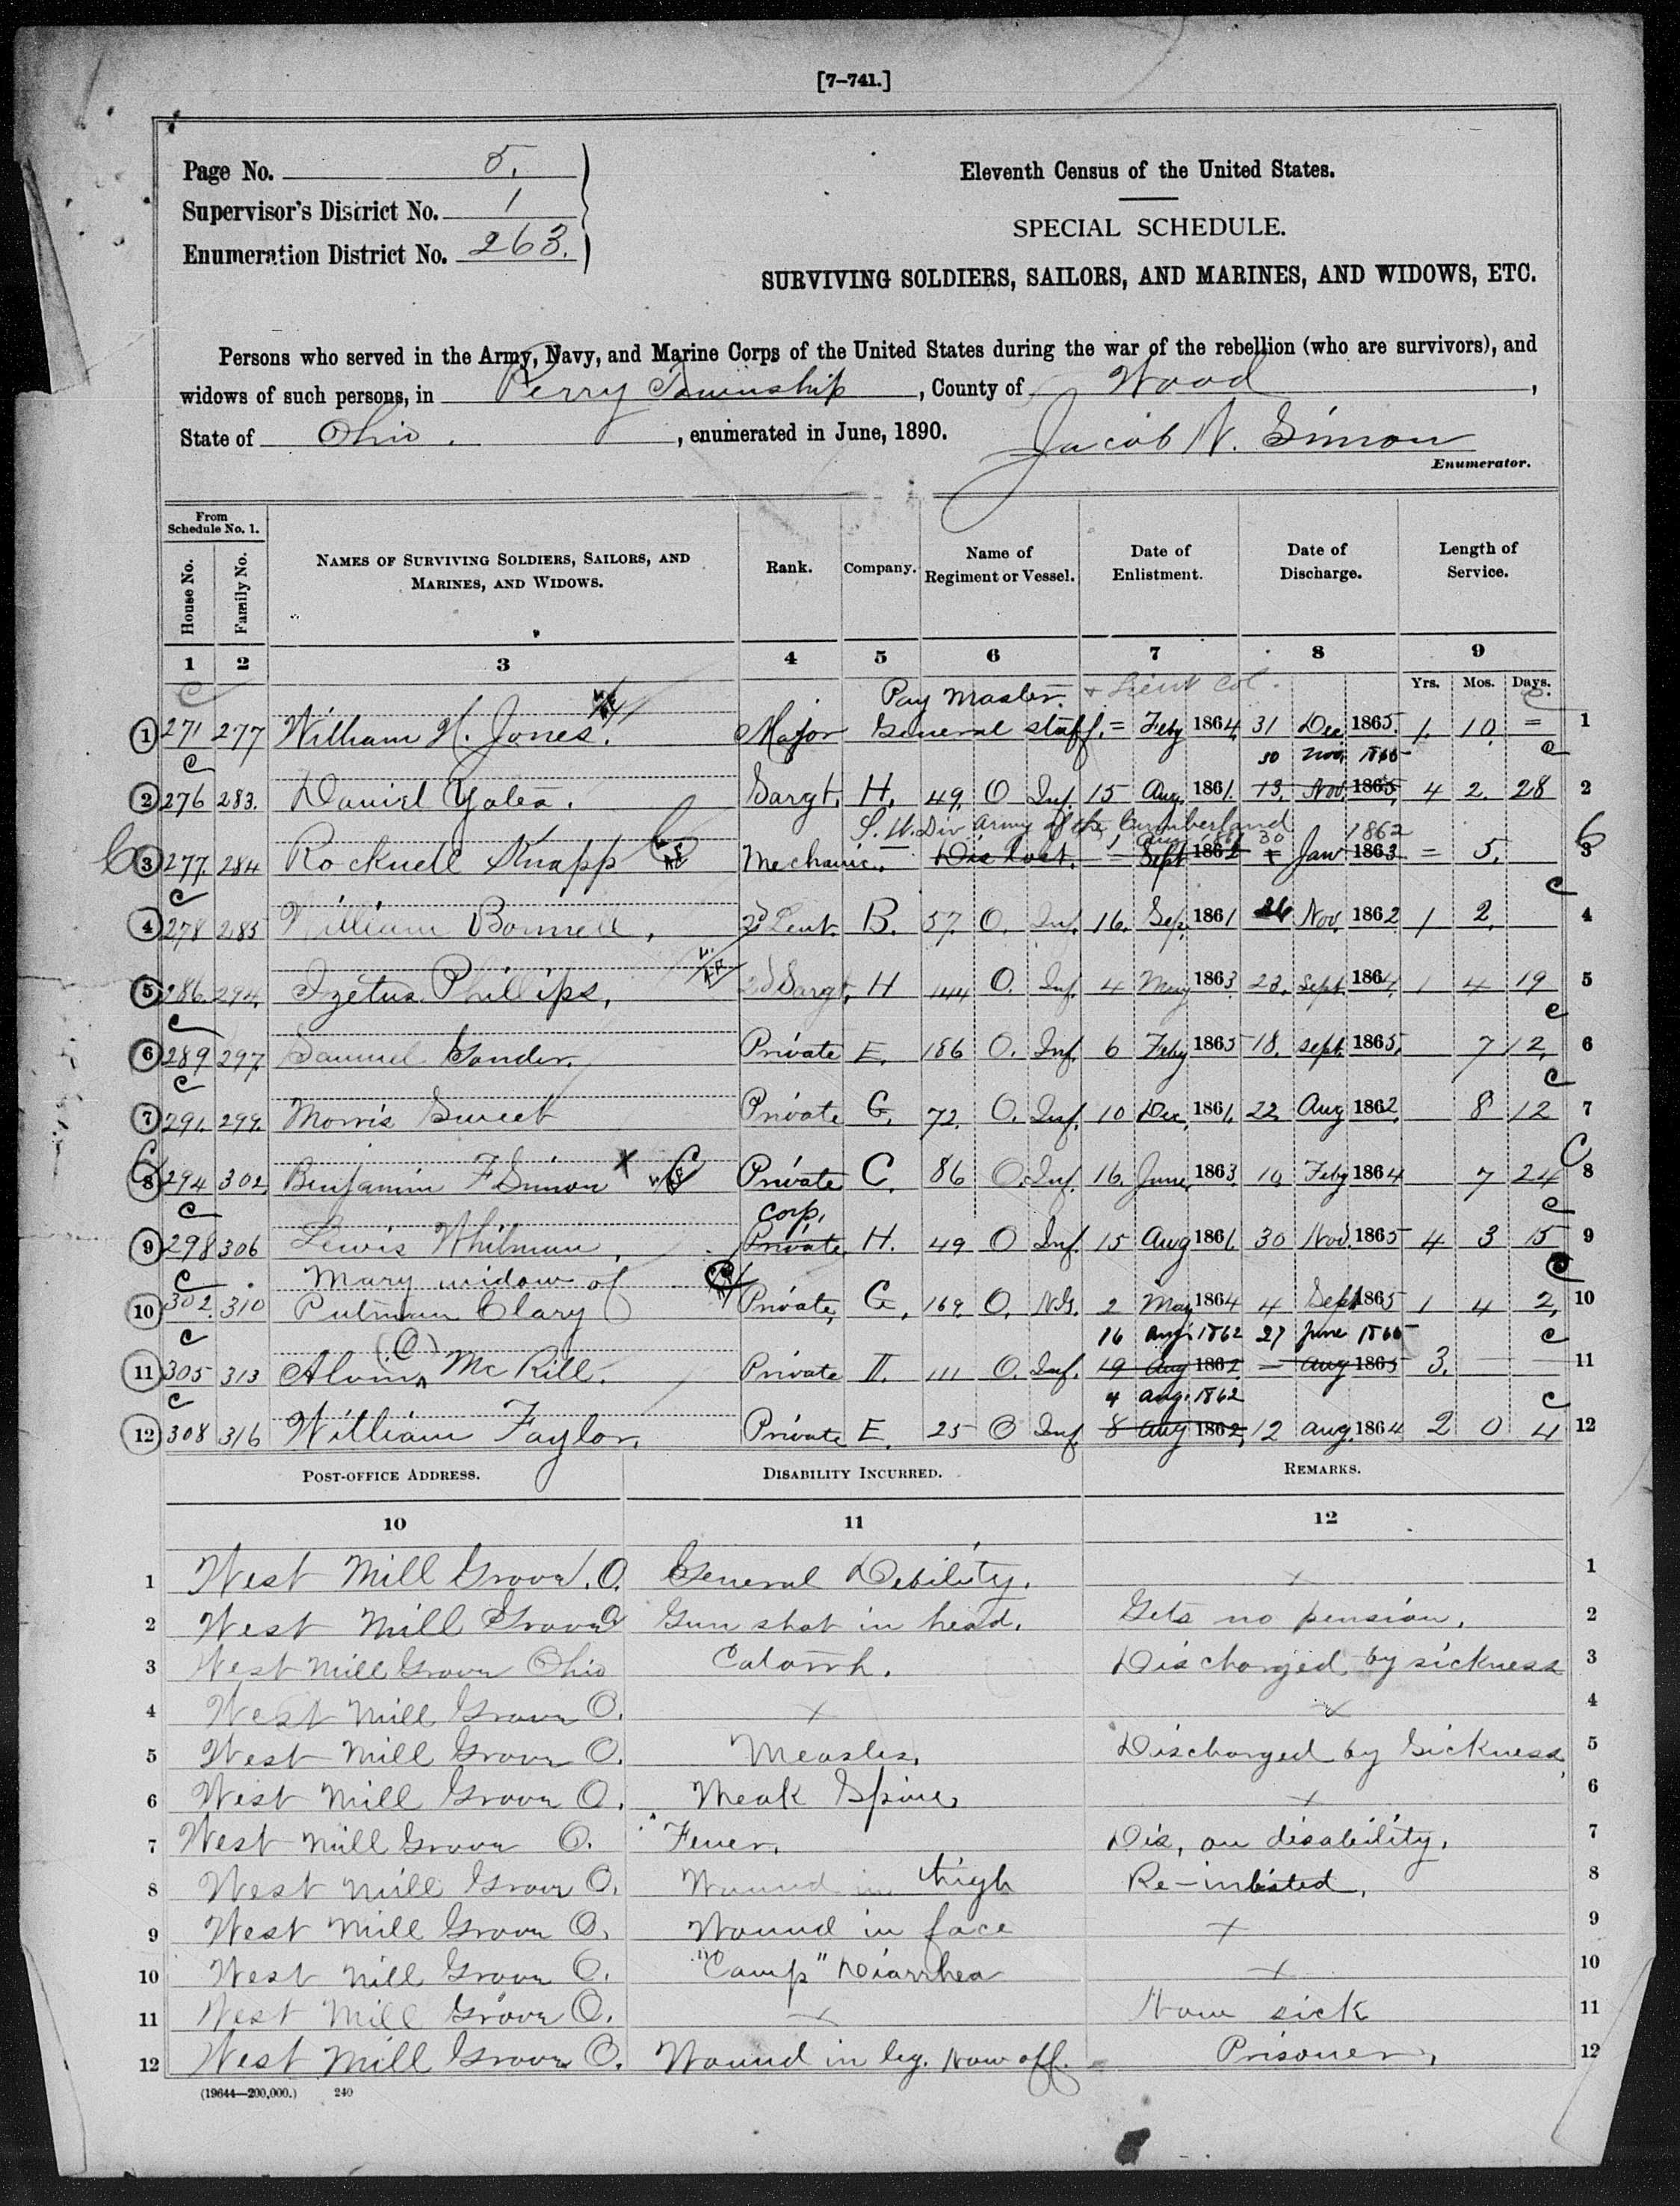 [7-741.]
Page No. 5.
Supervisor's District No. 1
Enumeration District No. 263.
Eleventh Census of the United States.
SPECIAL SCHEDULE.
SURVIVING SOLDIERS, SAILORS, AND MARINES, AND WIDOWS, ETC.
Persons who served in the Army, Navy, and Marine Corps of the United States during the war of the rebellion (who are survivors), and
widows of such persons, in Perry Township, County of Wood,
State of Ohio., enumerated in June, 1890. Jacob N. Simon
Enumerator.
From Schedule No. 1.
House No. Family No. NAMES OF SURVIVING SOLDIERS, SAILORS, AND MARINES, AND WIDOWS. Rank. Company. Name of Regiment or Vessel. Date of Enlistment. Date of Discharge. Length of Service.
1 2 3 4 5 6 7 8 9
Yrs. Mos. Days.
Pay Master. + Lieut Col.
1 271 277 William H. Jones. Major General staff. = Feby 1864 31 Dec 1865. 1. 10. = 1
30 Nov 1865
2 276 283. Daniel Yates. Sargt. H. 49. O Inf. 15 Aug. 1861. 13. Nov. 1865, 4 2. 28 2
Div Army of the Cumberland
1862
3 277. 284 Rocknell Knapp Mechanic. Dis lost. = Sept 1862 = Jan 1863 = 5. 3
4 278 285 William Bonnell, 2d Leut. B. 57. O. Inf. 16. Sep. 1861 26 Nov. 1862 1 2. 4
5 286. 294. Izetus Phillips, 2d Sargt. H 144 O. Inf. 4 May 1863 23. Sept. 1864. 1 4 19 5
6 289 297. Samuel Sonder. Private E. 186 O. Inf. 6 Feby 1865 18. Sept. 1865. 7 12, 6
7 291. 299. Morris Sweet Private G. 72. O. Inf. 10 Dec. 1861, 22 Aug 1862, 8 12 7
8 294 302, Benjamin F Simon X Private C. 86 O. Inf. 16. June 1863. 10 Feby 1864 7 24 8
Corp.
9 298 306 Lewis Whitman, Private H. 49 O Inf. 15 Aug 1861. 30 Nov. 1865 4 3 15 9
Mary widow of
10 302. 310 Putnam Clary Private, G, 169. O. N.G. 2 May 1864 4 Sept 1865 1 4 2, 10
16 Aug. 1862 27 June 1865
(C)
11 305 313 Alvin McKill. Private K. 111 O. Inf. 19 Aug 1862. — Aug 1865 3. — — 11
4 Aug. 1862
12 308 316 William Taylor, Private E. 25 O Inf. 8 Aug 1862, 12 Aug. 1864 2 0 4 12
POST-OFFICE ADDRESS. DISABILITY INCURRED. REMARKS.
10 11 12
1 West Mill Grove, O. General Debility. x 1
2 West Mill Grove O Gun shot in head. Gets no pension. 2
3 West Mill Grove Ohio Catarrh. Discharged by sickness 3
4 West Mill Grove O. x x 4
5 West Mill Grove O. Measles, Discharged by Sickness, 5
6 West Mill Grove O. Weak Spine, x 6
7 West Mill Grove O. Fever, Dis, on disability, 7
8 West Mill Grove O, Wound in thigh Re-inlisted, 8
9 West Mill Grove O, Wound in face x 9
10 West Mill Grove O. "Camp" Diarrhea x 10
11 West Mill Grove O. x Now sick 11
12 West Mill Grove O. Wound in leg. Now off. Prisoner, 12
(19644—200,000.) 240